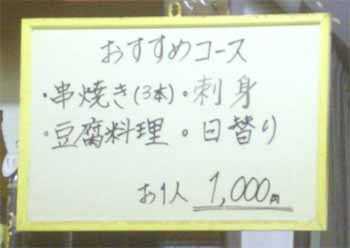 おすすめコース
・串焼き(3本)・刺身
・豆腐料理・日替り
お1人 1,000円